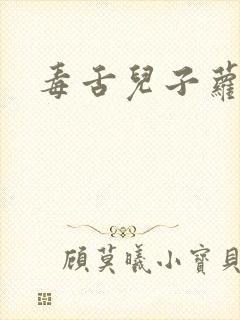 毒舌兒子蘿
顾莫曦小寶貝